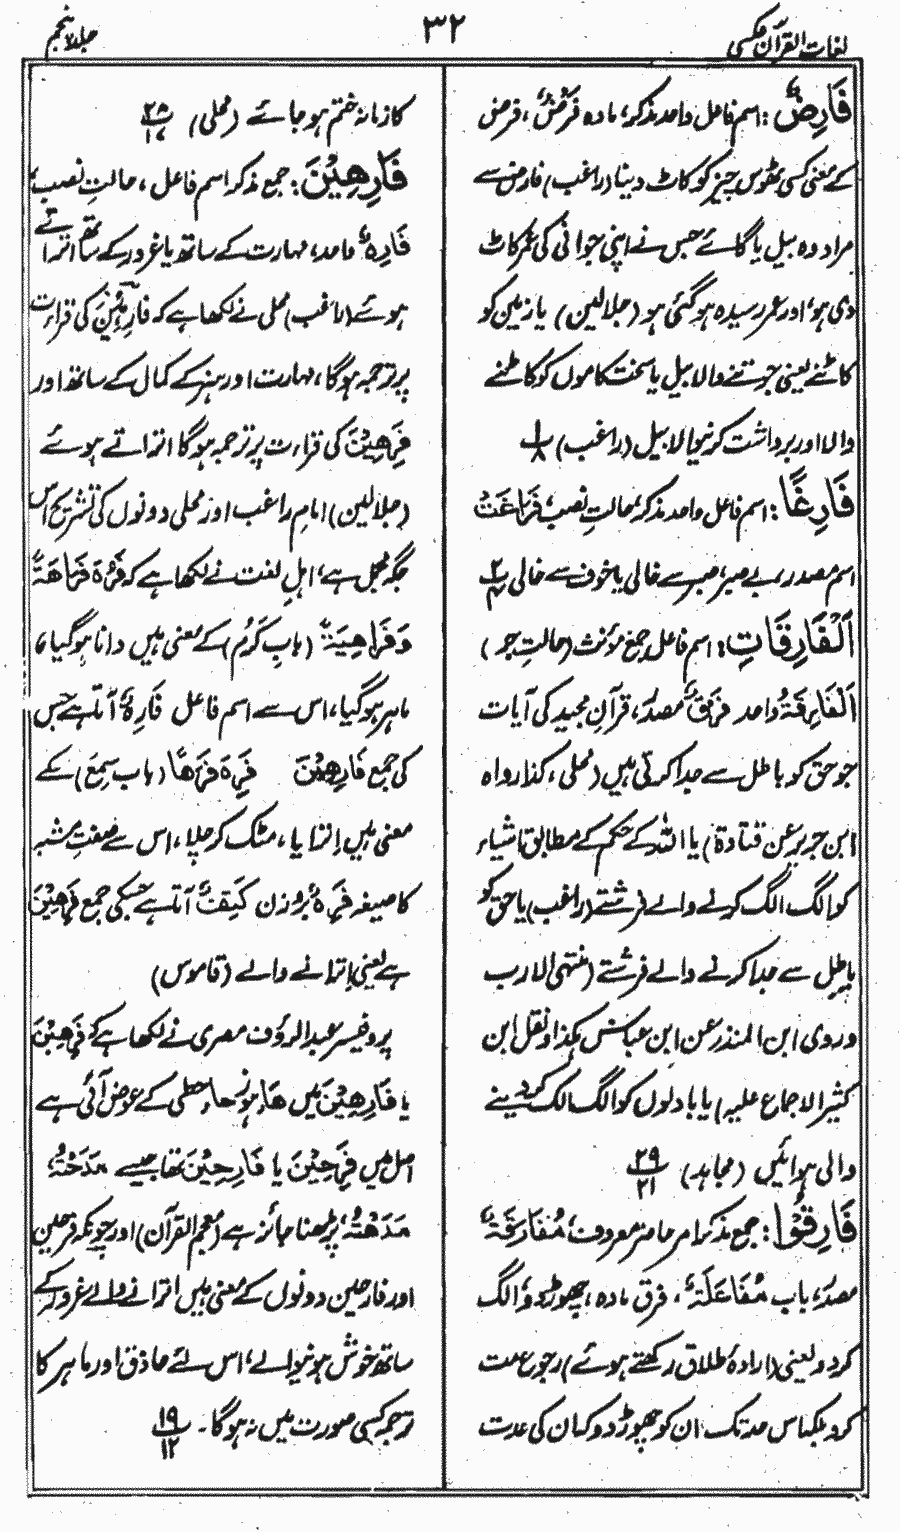 لغات القرآن عکسی
۳۲
جلد پنجم
فَارِضٌ: اسم فاعل واحد مذکر، مادہ فَرْضٌ، فرض
کے معنی کسی ٹھوس چیز کو کاٹ دینا (راغب) فارض سے
مراد وہ بیل یا گائے جس نے اپنی جوانی کی عمر کاٹ
دی ہو، اور عمر رسیدہ ہو گئی ہو (جلالین) یا زمین کو
کاٹنے یعنی جوتنے والا بیل یا سخت کاموں کو کاٹنے
والا اور برداشت کرنیوالا بیل (راغب) ۱/۸
فَارِغًا: اسم فاعل واحد مذکر، حالتِ نصب، فَرَاغَتْ
اسم مصدر، بے صبر، صبر سے خالی یا خوف سے خالی ۲۰/۴
اَلْفَارِقَاتِ: اسم فاعل جمع مؤنث (حالتِ جر)
اَلْفَارِقَةُ واحد فَرْقٌ مصدر، قرآنِ مجید کی آیات
جو حق کو باطل سے جدا کرتی ہیں (محلی، کذا رواہ
ابن جریر عن قتادۃ) یا اللہ کے حکم کے مطابق اشیاء
کو الگ الگ کرنے والے فرشتے (راغب) یا حق کو
باطل سے جدا کرنے والے فرشتے (منتہی الارب
وروی ابن المنذر عن ابن عباس ہکذا ونقل ابن
کثیر الاجماع علیہ) یا بادلوں کو الگ الگ کردینے
والی ہوائیں (مجاہد) ۲۹/۲۱
فَارِقُوْا: جمع مذکر امر حاضر معروف، مُفَارَقَةٌ
مصدر، باب مُفَاعَلَةٌ، فرق مادہ، چھوڑ دو، الگ
کردو یعنی (ارادۂ طلاق رکھتے ہوئے) رجوع مت
کرو بلکہ اس حد تک ان کو چھوڑ دو کہ ان کی عدت
کا زمانہ ختم ہو جائے (محلی) ۲۸/۱۷
فَارِهِيْنَ: جمع مذکر اسم فاعل، حالتِ نصب،
فَارِهٌ واحد، مہارت کے ساتھ یا غرور کے ساتھ اتراتے
ہوئے (راغب) محلی نے لکھا ہے کہ فَارِهِيْنَ کی قراءت
پر ترجمہ ہوگا، مہارت اور ہنر کے کمال کے ساتھ اور
فَرِهِيْنَ کی قراءت پر ترجمہ ہوگا اتراتے ہوئے
(جلالین) امام راغب اور محلی دونوں کی تشریح اس
جگہ مجمل ہے، اہلِ لغت نے لکھا ہے کہ فَرُهَ فَرَاهَةً
وَفَرَاهِيَةً (بابِ كَرُمَ) کے معنی ہیں دانا ہو گیا،
ماہر ہو گیا، اس سے اسم فاعل فَارِهٌ آتا ہے جس
کی جمع فَارِهِيْنَ فَرِهَ فَرَهًا (باب سَمِعَ) کے
معنی ہیں اِترایا، مٹک کر چلا، اس سے صفتِ مشبہ
کا صیغہ فَرِهٌ بروزن كَتِفٌ آتا ہے جسکی جمع فَرِهِيْنَ
ہے یعنی اِترانے والے (قاموس)
پروفیسر عبدالرؤف مصری نے لکھا ہے کہ فَرِهِيْنَ
یا فَارِهِيْنَ میں هَاء ہوّز حاء حطی کے عوض آئی ہے
اصل میں فَرِحِيْنَ یا فَارِحِيْنَ تھا جیسے مَدَحْتُهٗ،
مَدَهْتُهٗ، پڑھنا جائز ہے (معجم القرآن) اور چونکہ فرحین
اور فارحین دونوں کے معنی ہیں اترانے والے غرور کے
ساتھ خوش ہونیوالے، اس لئے حاذق اور ماہر کا
ترجمہ کسی صورت میں نہ ہوگا۔ ۱۹/۱۲